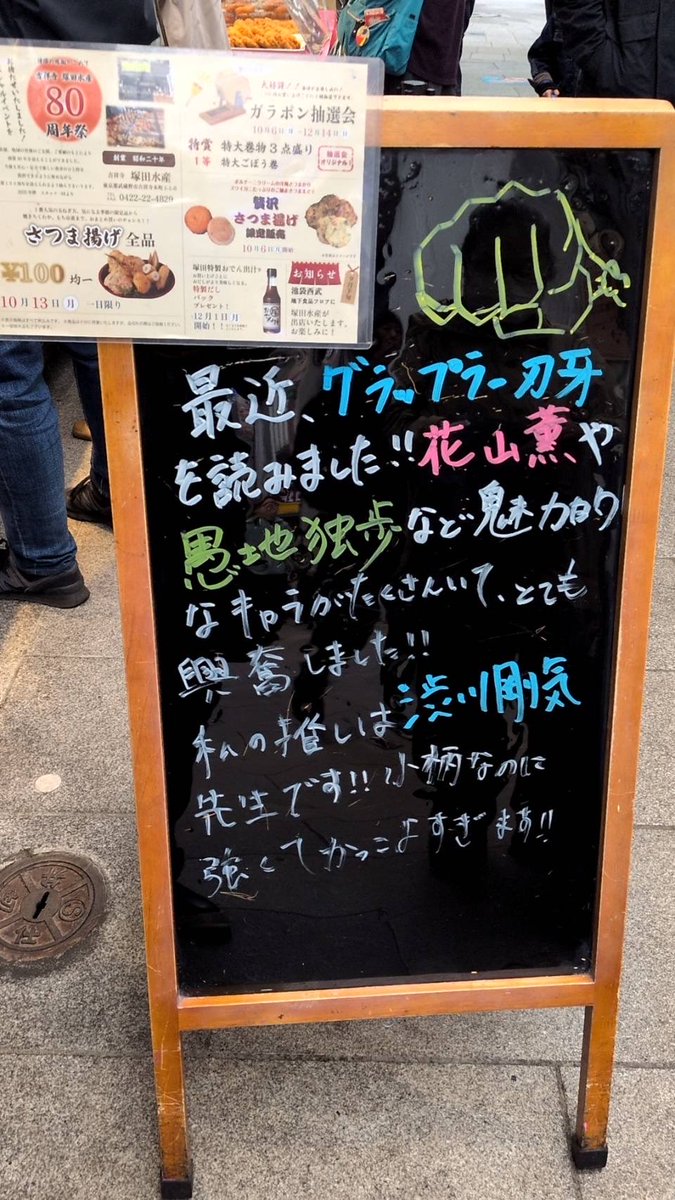 吉祥寺 塚田水産
80
周年祭
創業 昭和二十年
吉祥寺 塚田水産
0422-22-4829
さつま揚げ 全品
¥100 均一
10月13日(月) 一日限り
ガラポン抽選会
10月6日(月)~12月14日(日)
特賞 特大巻物3点盛り
1等 特大ごぼう巻
抽選会
オリジナル
贅沢
さつま揚げ
限定販売
10月6日(月)開始
塚田特製おでん出汁
特製だし
パック
プレゼント!
12月1日(月)
開始!!
お知らせ
池袋西武
地下食品フロアに
塚田水産が
出店いたします。
お楽しみに!
最近、グラップラー刃牙
を読みました!!花山薫や
愚地独歩など魅力的
なキャラがたくさんいて、とても
興奮しました!!
私の推しは渋川剛気
先生です!!小柄なのに
強くてかっこよすぎます!!